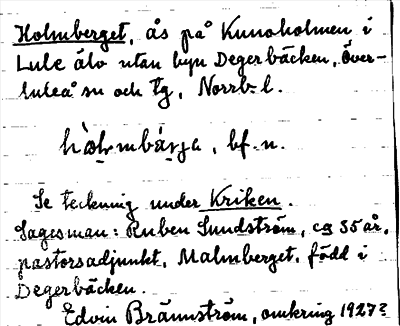 Holmberget, ås på Kunoholmen i
Lule älv utan byn Degerbäcken, Över-
luleå sn och tg, Norrb. l.
hòlmbárja, bf. n.
Se teckning under Kriken.
Sagesman: Ruben Sundström, ca 35 år,
pastorsadjunkt, Malmberget, född i
Degerbäcken.
Edvin Brännström, omkring 1927?